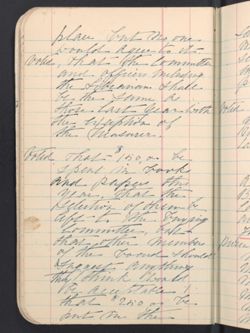 place but no one
would agree to it.
Voted, that the Committee
and officers including
the Librarian shall
be the same as
the last year with
the exception of
the Treasurer.
Voted that $150.00 be
spent in books
and papers this
year, that the
selection of them be
left to the Buying
Committee, but
that other members
of the Board should
suggest anything
they think would
be acceptable;
that $200 be
put in the